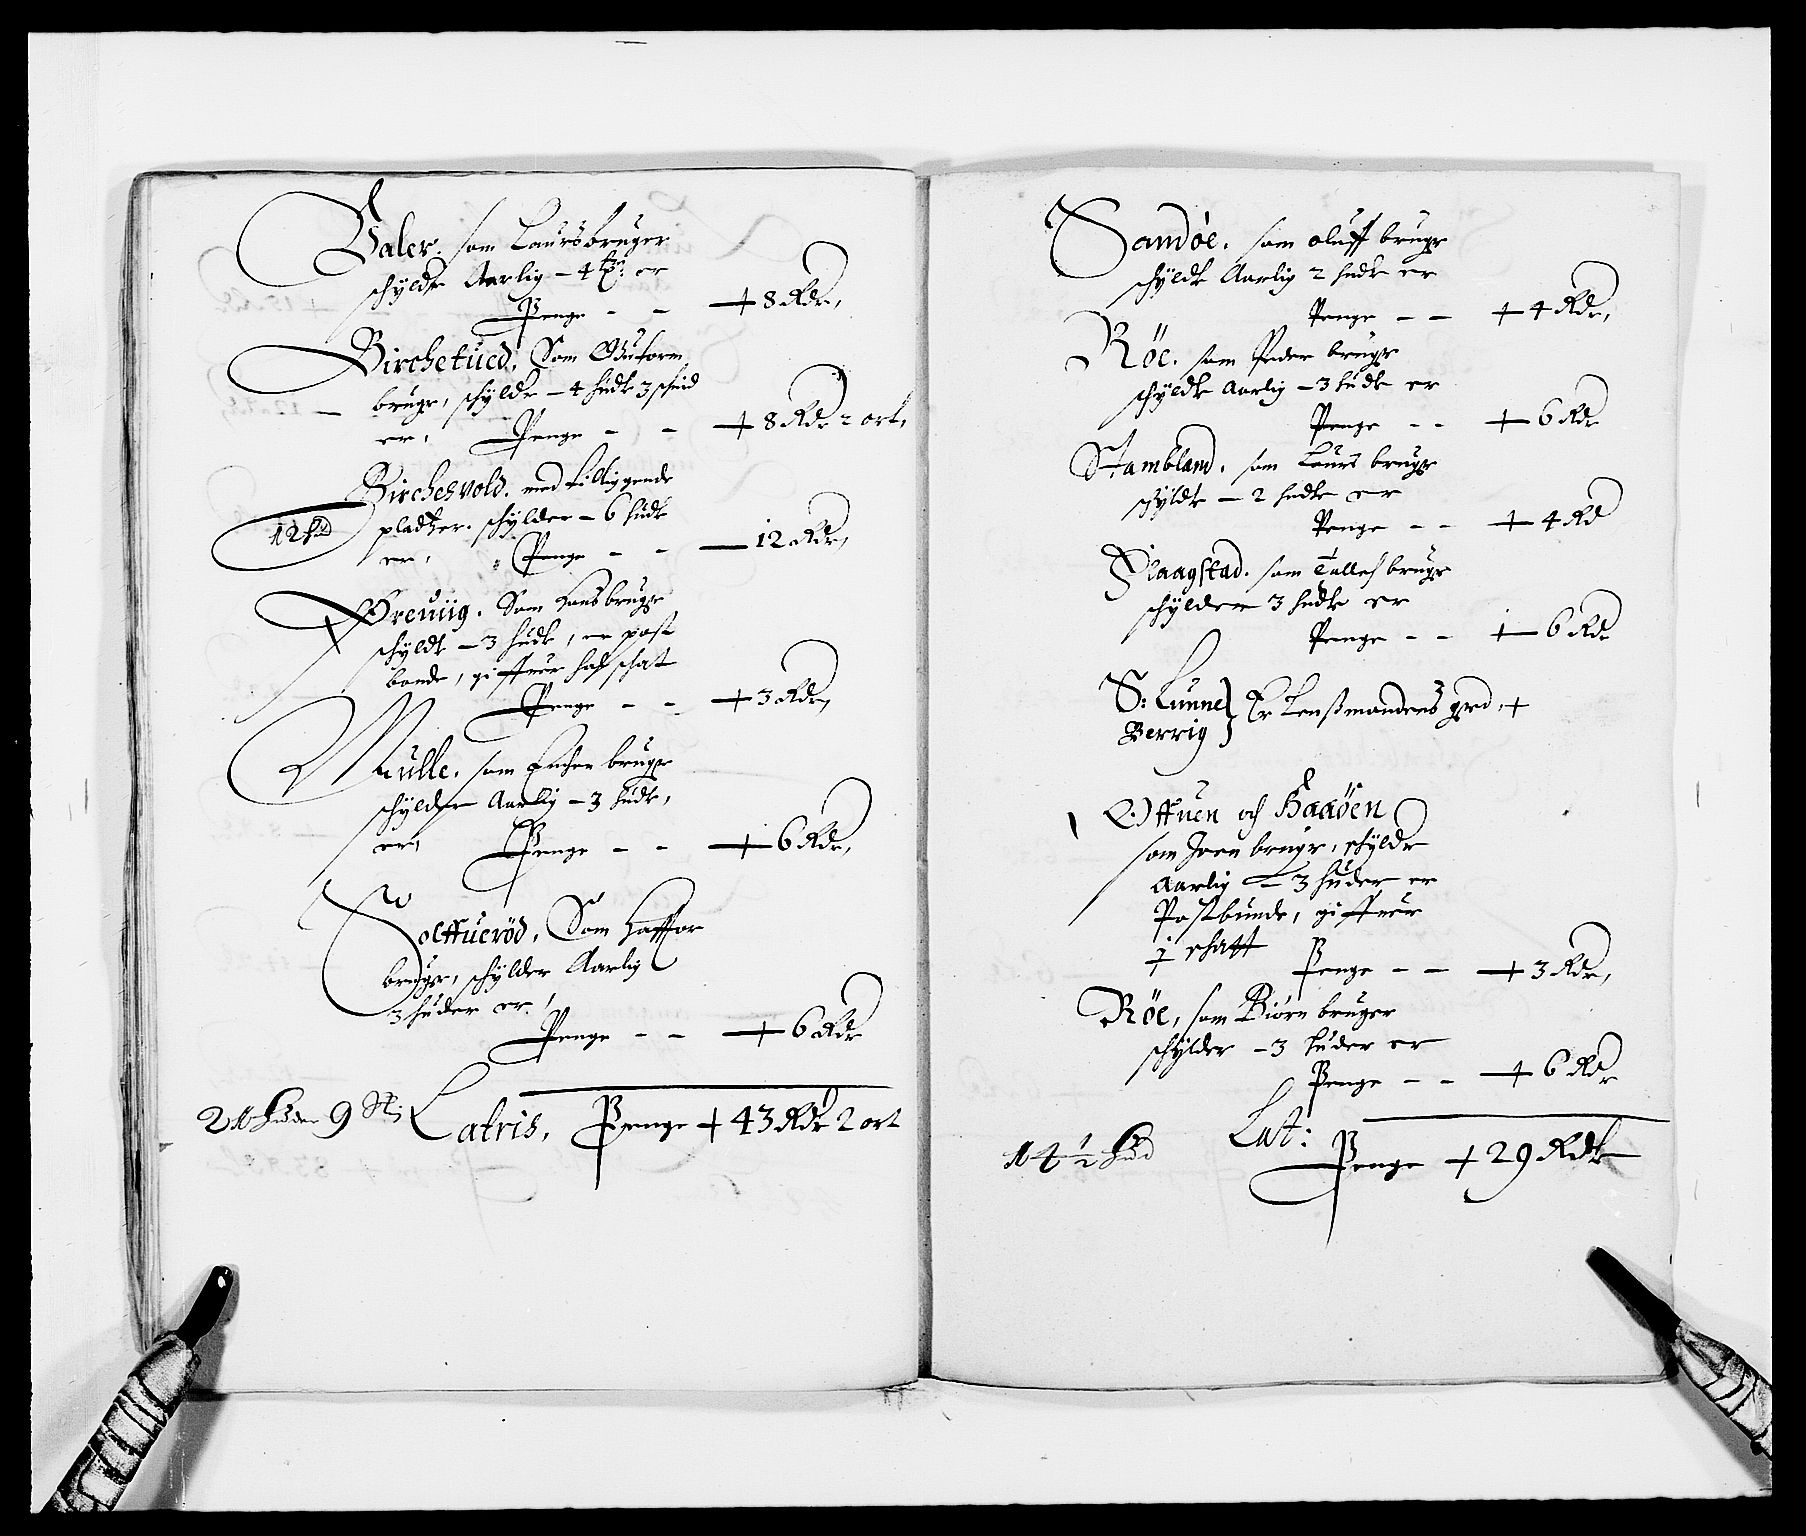 Valer. som Laurs bruger
schylder Aarlig – 4 er
Penge – – + 8 Rdr,
Birchetued. Som Gutorm
bruger, schylder – 4 hude 3 schind
er, Penge – – + 8 Rdr 2 ort,
Birchesvold. med tilliggende
pladtzer. schylder – 6 hude
12 Rd
er, Penge – – – 12 Rdr,
Øreuiig. Som Hans bruger
schyldr – 3 hude, er post
bonde, giffuer half schat
Penge – – + 3 Rdr,
Mulle. som bruger
schylder Aarlig – 3 hude,
er, Penge – – + 6 Rdr,
Solffueröd. Som Haffor
bruger, schylder Aarlig
3 huder er,
Penge – – + 6 Rdr
21 huder 9 Latris, Penge + 43 Rdr 2 ort
Sandöe. som oluff bruger
schylder Aarlig 2 hude er
Penge – – + 4 Rdr,
Röe. som Peder bruger
schylder Aarlig – 3 hude er
Penge – – + 6 Rdr
Stambland. som Laurs bruger
schylder – 2 hude er
Penge – – + 4 Rd
Flaagstad. som Tallef bruger
schylder 3 hude er
Penge – – + 6 Rd
S: Lunne } Er Lensmandens grd, +
Berrig }
Offuen och Haaöen
som Joen bruger, schylder
Aarlig – 3 huder er
Postbunde, giffuer
½ schatt Penge – – + 3 Rdr,
Röe, som Biörn bruger
schylder – 3 huder er
Penge – – + 6 Rdr
Lat:
14 ½ hud Penge + 29 Rdr